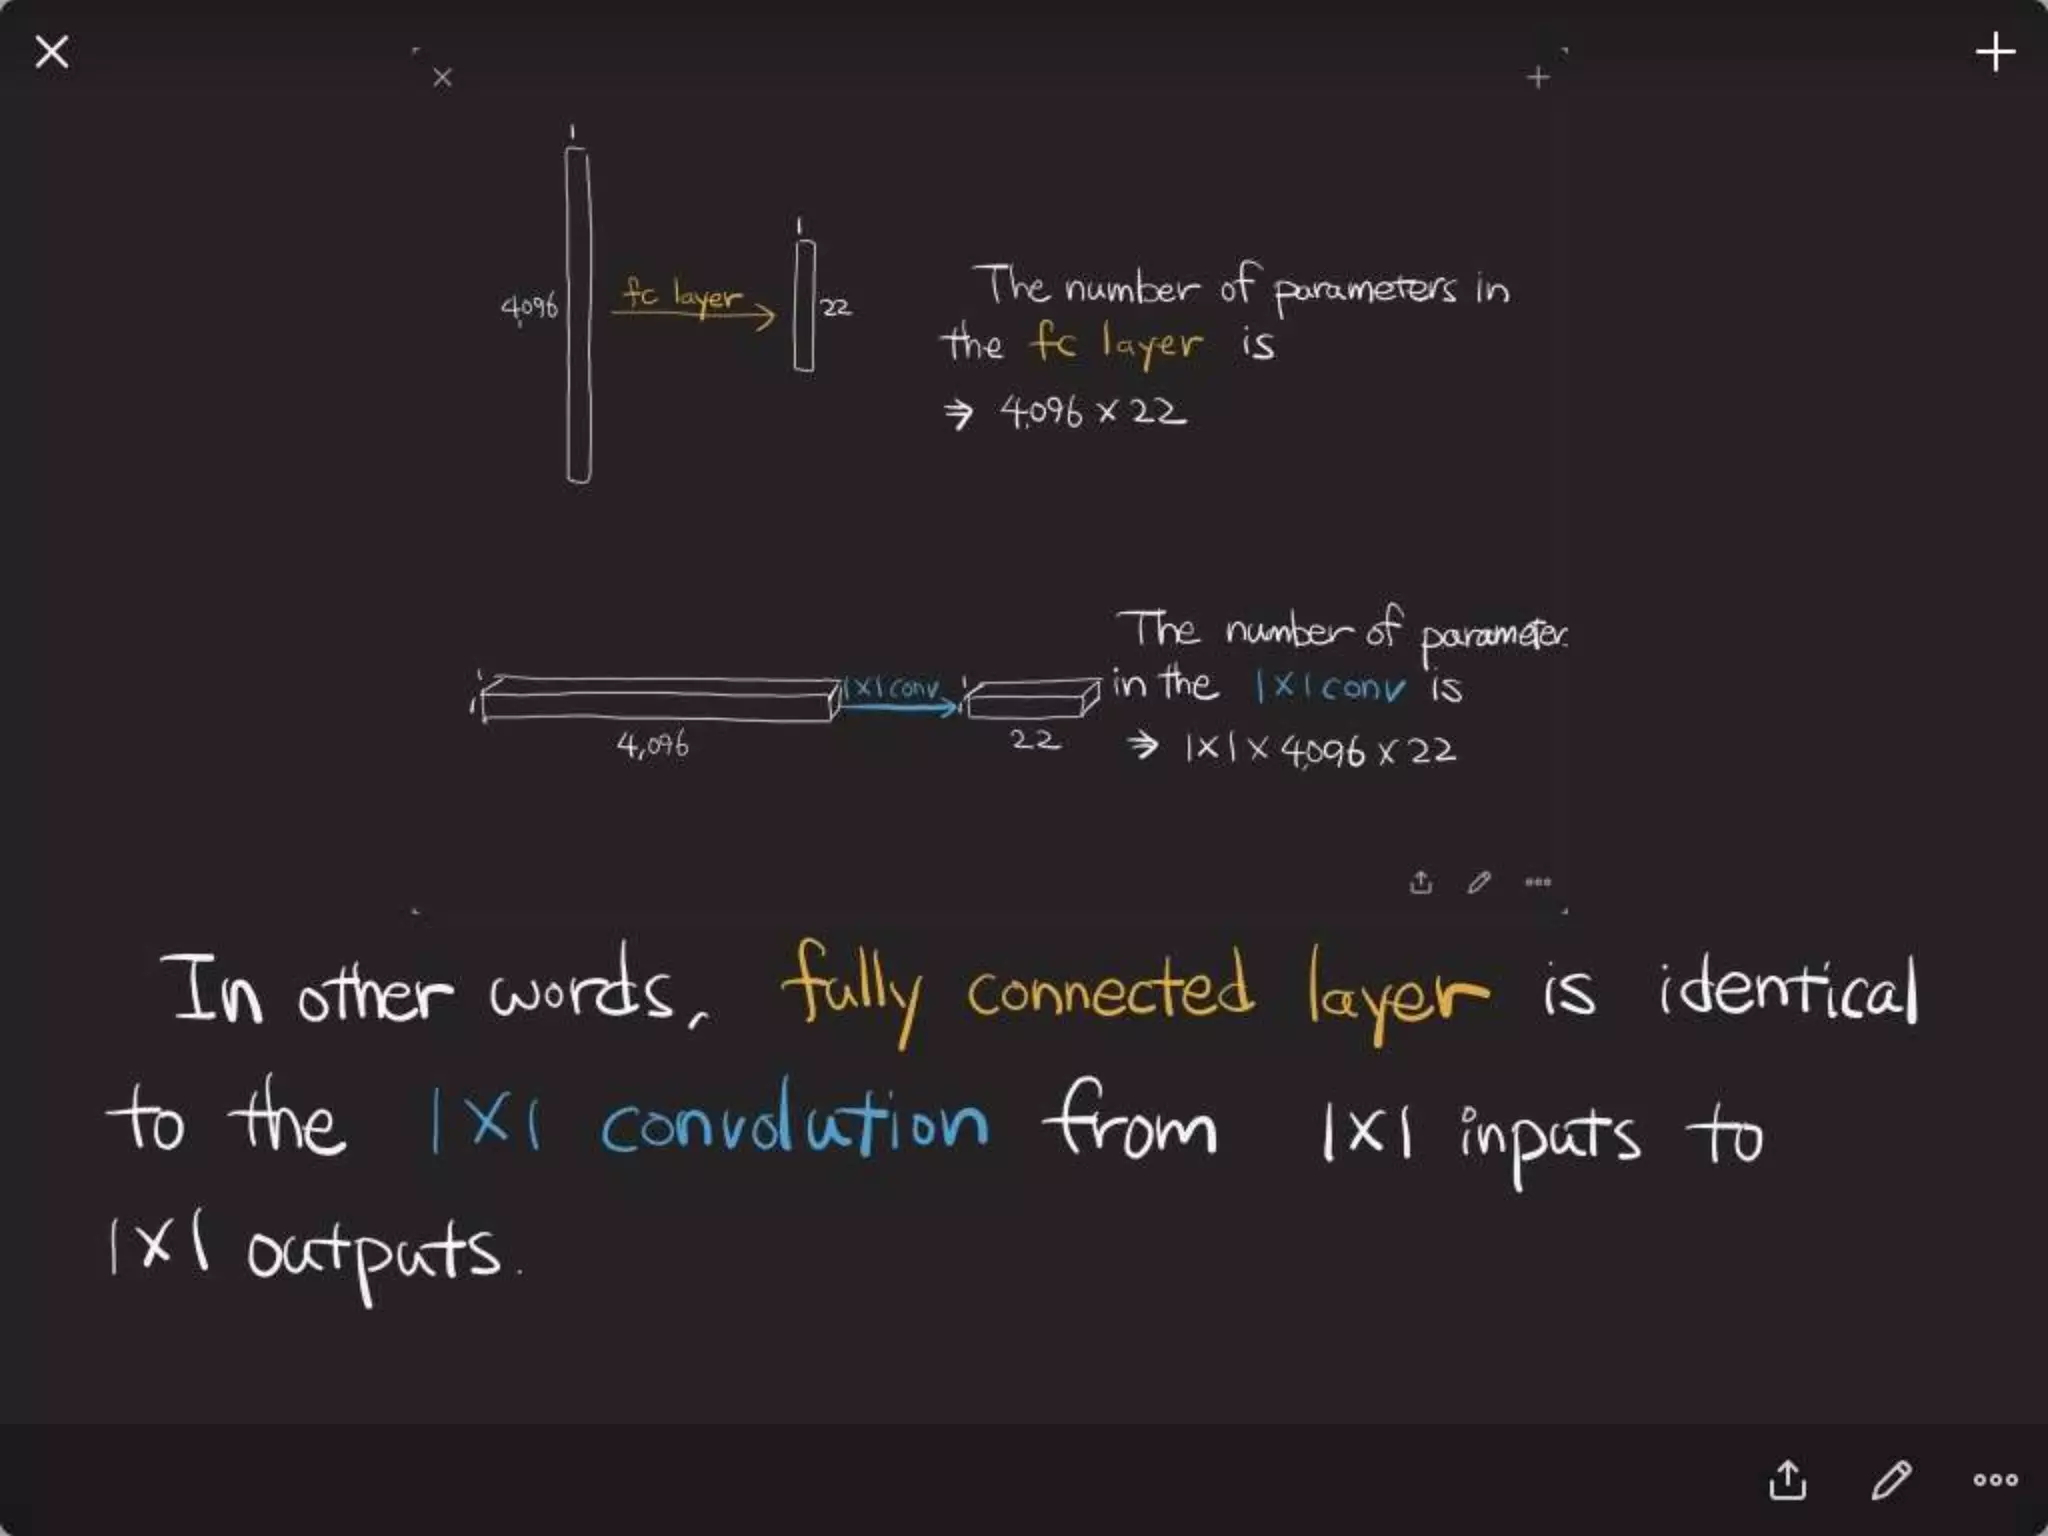 1
1
4,096
fc layer
22
The number of parameters in
the fc layer is
⇒ 4,096 × 22
The number of parameter.
1
1×1 conv
1
in the 1×1 conv is
1
1
4,096
22
⇒ 1×1×4,096×22
In other words, fully connected layer is identical
to the 1×1 convolution from 1×1 inputs to
1×1 outputs.